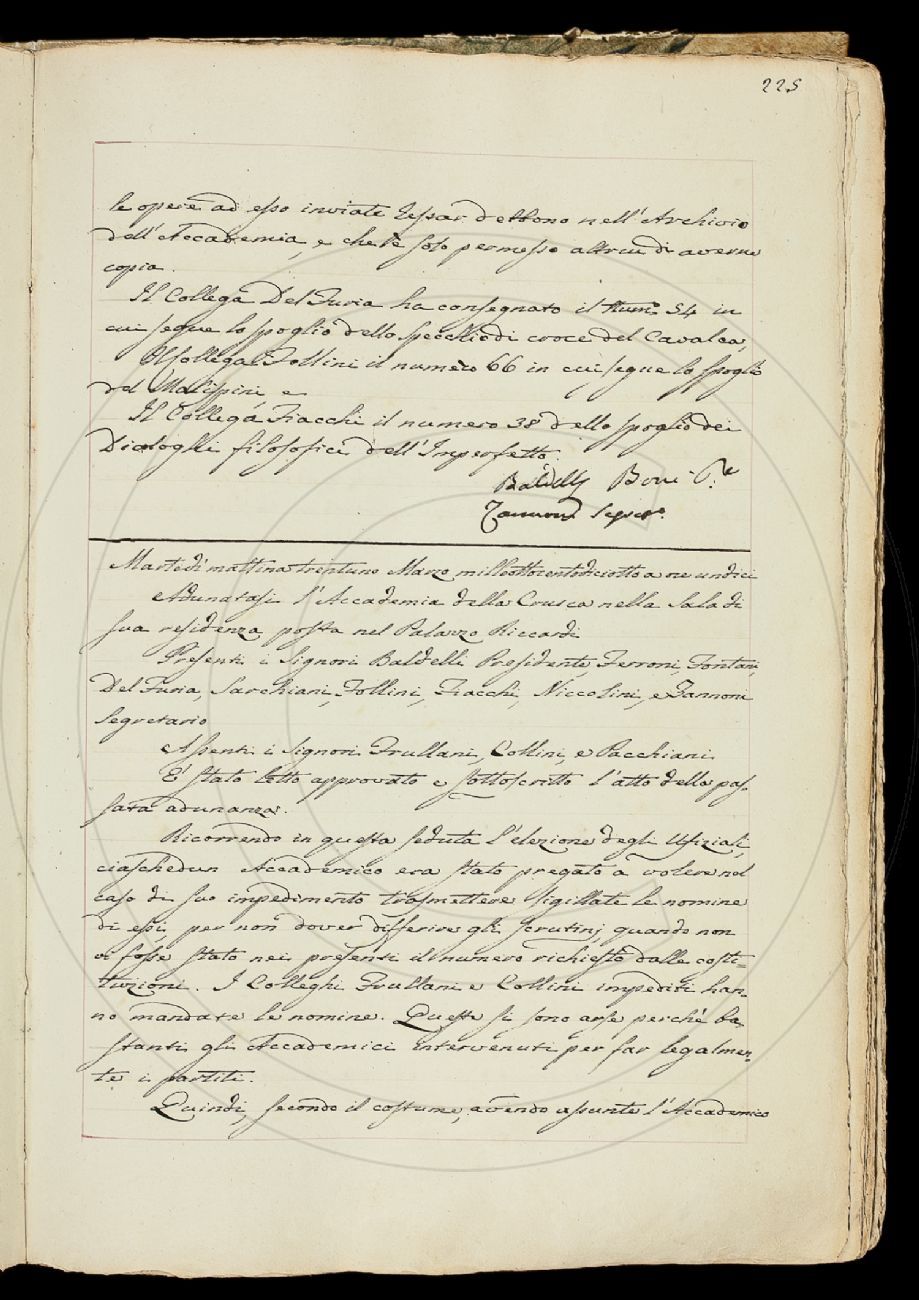 225
le opere ad esso inviate restar debbono nell'Archivio
dell'Accademia, e che è solo permesso altrui di averne
copia.
Il Collega Del Furia ha consegnato il Num. 54 in
cui segue lo spoglio dello specchio di croce del Cavalca,
Il Collega Follini il numero 66 in cui segue lo spoglio
del Malispini, e
Il Collega Fiacchi il numero 38 dello spoglio dei
Dialoghi filosofici dell'Imperfetto.
Baldelli Boni P.te
Zannoni Segret.o
Martedì mattina trentuno Marzo milleottocentodiciotto a ore undici
Adunatasi l'Accademia della Crusca nella Sala di
sua residenza posta nel Palazzo Riccardi
Presenti i Signori Baldelli Presidente, Ferroni, Fontani,
Del Furia, Sarchiani, Follini, Fiacchi, Niccolini, e Zannoni
Segretario
Assenti i Signori Frullani, Collini, e Pacchiani
E' stato letto approvato e sottoscritto l'atto della pas-
sata adunanza.
Ricorrendo in questa seduta l'elezione degli Ufiziali,
ciaschedun Accademico era stato pregato a volere nel
caso di suo impedimento trasmettere sigillate le nomine
di essi, per non dover differire gli scrutinj quando non
vi fosse stato nei presenti il numero richiesto dalle costi=
tuzioni. I Colleghi Frullani e Collini impediti han-
no mandate le nomine. Queste si sono arse perchè ba-
stanti gli Accademici intervenuti per far legalmen-
te i partiti.
Quindi, secondo il costume, avendo assunte l'Accademico